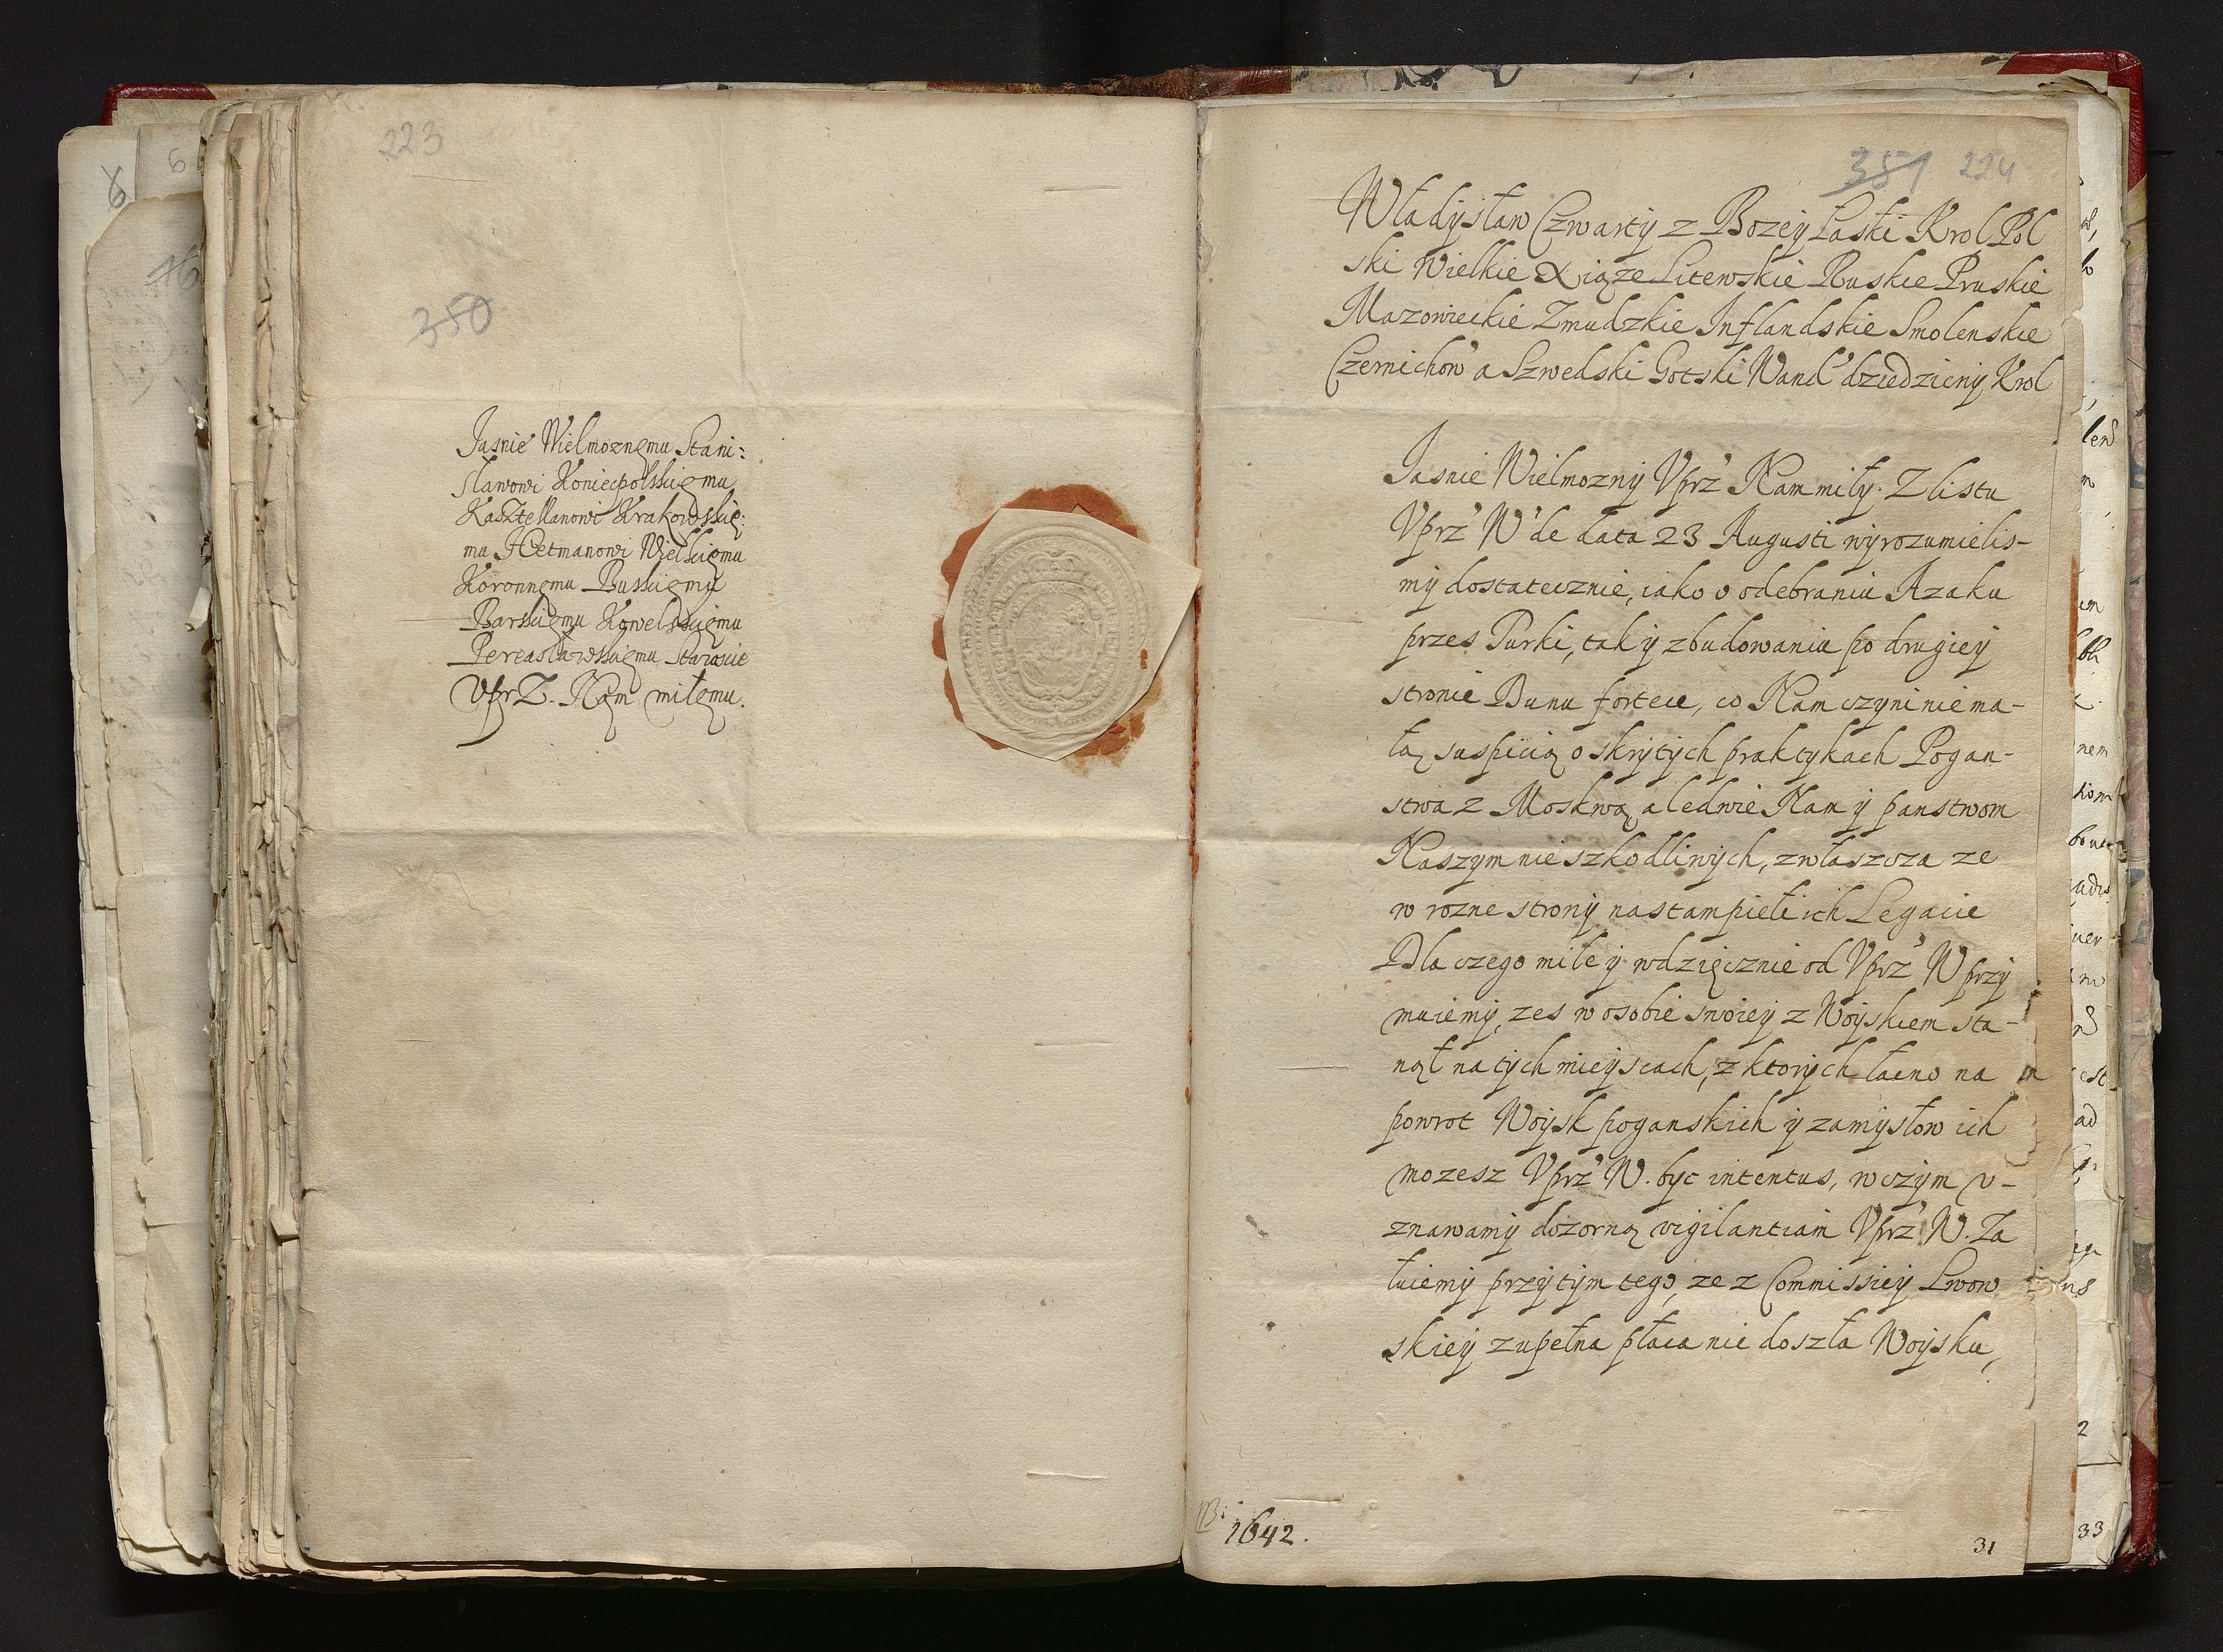 223
350
Jasnie Wielmoznemu Stani:
sławowi Koniecpolskiemu
Kasztellanowi Krakowskie:
mu Hetmanowi Wielkiemu
Koronnemu Buskiemu
Barskiemu Kowelskiemu
Pereasławskiemu Staroscie
Vprz. Nam miłemu.
351 224
Władysław Czwarty z Bozey Łaski Krol Pol
ski Wielkie Xiąze Litewskie Ruskie Pruskie
Mazowieckie Zmudzkie Inflandskie Smolenskie
Czernichow a Szwedski Gotski Wand dziedziczny Krol
Jasnie Wielmozny Vprz Nam miły. Z listu
Vprz W de data 23 Augusti wyrozumielis-
my dostatecznie, iako o odebraniu Azaku
przes Turki, tak y zbudowaniu po drugiey
stronie Dunu fortece, co Nam czyni niema-
łą suspicią o skrytych praktykach Pogan-
stwa z Moskwą, a ledwie Nam y panstwom
Naszym nie szkodliwych, zwłaszcza ze
w rozne strony nastampieły ich Legacie
Dla czego mile y wdzięcznie od Vprz W przy
muiemy, zes w osobie swoiey z Woyskiem sta-
nął na tych mieyscach, z ktorych łacno na
powrot Woysk poganskich y zamysłow ich
mozesz Vprz W. byc intentus, w czym v-
znawamy dozorną vigilantiam Vprz W. Za
łuiemy przytym tego, ze z Commissiey Lwow
skiey zupełna płaca nie doszła Woysku,
1642.
31
33